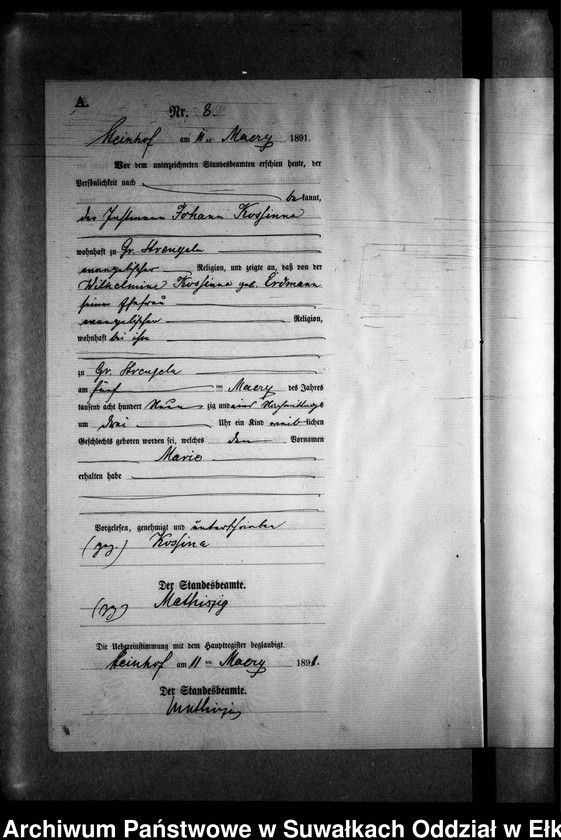 A.
Nr. 8.
Steinhof am 11ten Maerz 1891.
Vor dem unterzeichneten Standesbeamten erschien heute, der
Persönlichkeit nach
bekannt,
der Instmann Johann Kossinna
wohnhaft zu Gr. Strengeln
evangelischer Religion, und zeigte an, daß von der
Wilhelmine Kossinna geb. Erdmann
seiner Ehefrau
evangelischer Religion,
wohnhaft bei ihm
zu Gr. Strengeln
am fünf ten Maerz des Jahres
tausend acht hundert neun zig und eins Nachmittags
um drei Uhr ein Kind weiblichen
Geschlechts geboren worden sei, welches den Vornamen
Marie
erhalten habe
Vorgelesen, genehmigt und unterschrieben
(gez.) Kossina
Der Standesbeamte.
(gz) Mathiszig
Die Uebereinstimmung mit dem Hauptregister beglaubigt.
Steinhof am 11 ten Maerz 1891.
Der Standesbeamte.
Mathiszig
Archiwum Państwowe w Suwałkach Oddział w Ełk